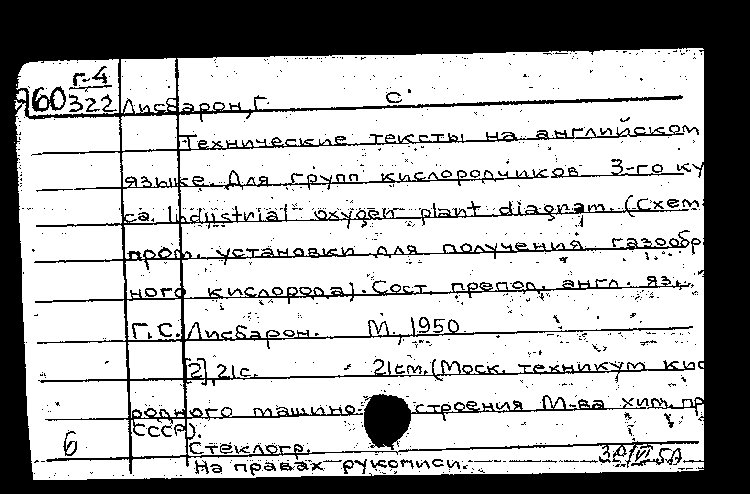 Г-4
Я60 322 Лисбарон, Г. С.
Технические тексты на английском
языке. Для групп кислородчиков 3-го ку
са. Industrial oxygen plant diagram. (Схем
пром. установки для получения газообр
ного кислорода). Сост. препод. англ. яз.
Г.С. Лисбарон. М., 1950
[2], 21с. 21см. (Моск. техникум кис
родного машиностроения М-ва хим. пр
СССР).
6 Стеклогр.
На правах рукописи.